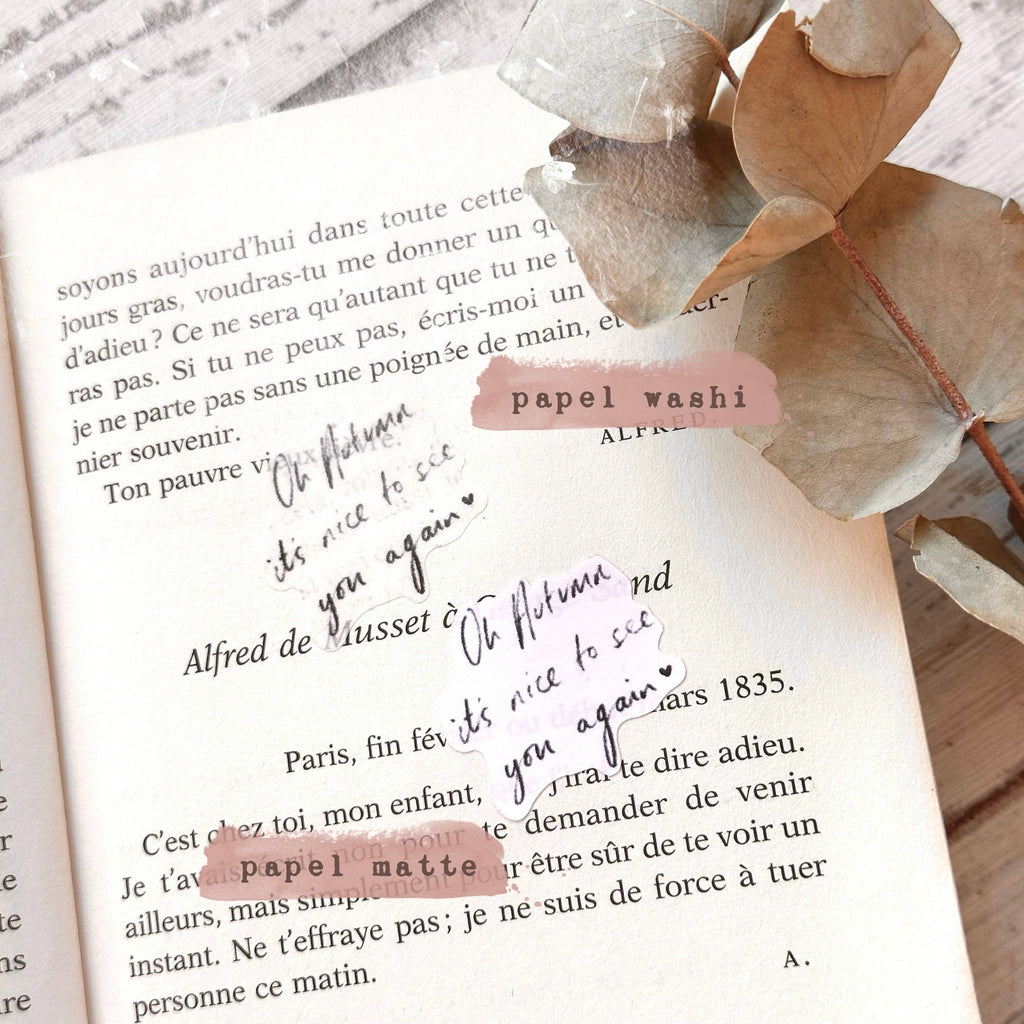 soyons aujourd'hui dans toute cette
jours gras, voudras-tu me donner un
d'adieu? Ce ne sera qu'autant que tu ne
ras pas. Si tu ne peux pas, écris-moi un
je ne parte pas sans une poignée de main, et
nier souvenir.
Ton pauvre
ALFRED.
papel washi
Oh Autumn
it's nice to see
you again
Alfred de Musset à
Oh Autumn
it's nice to see
you again
Paris, fin
mars 1835.
C'est chez toi, mon enfant, j'irai te dire adieu.
Je t'avais écrit non pour te demander de venir
papel matte
ailleurs, mais simplement pour être sûr de te voir un
instant. Ne t'effraye pas; je ne suis de force à tuer
personne ce matin.
A.